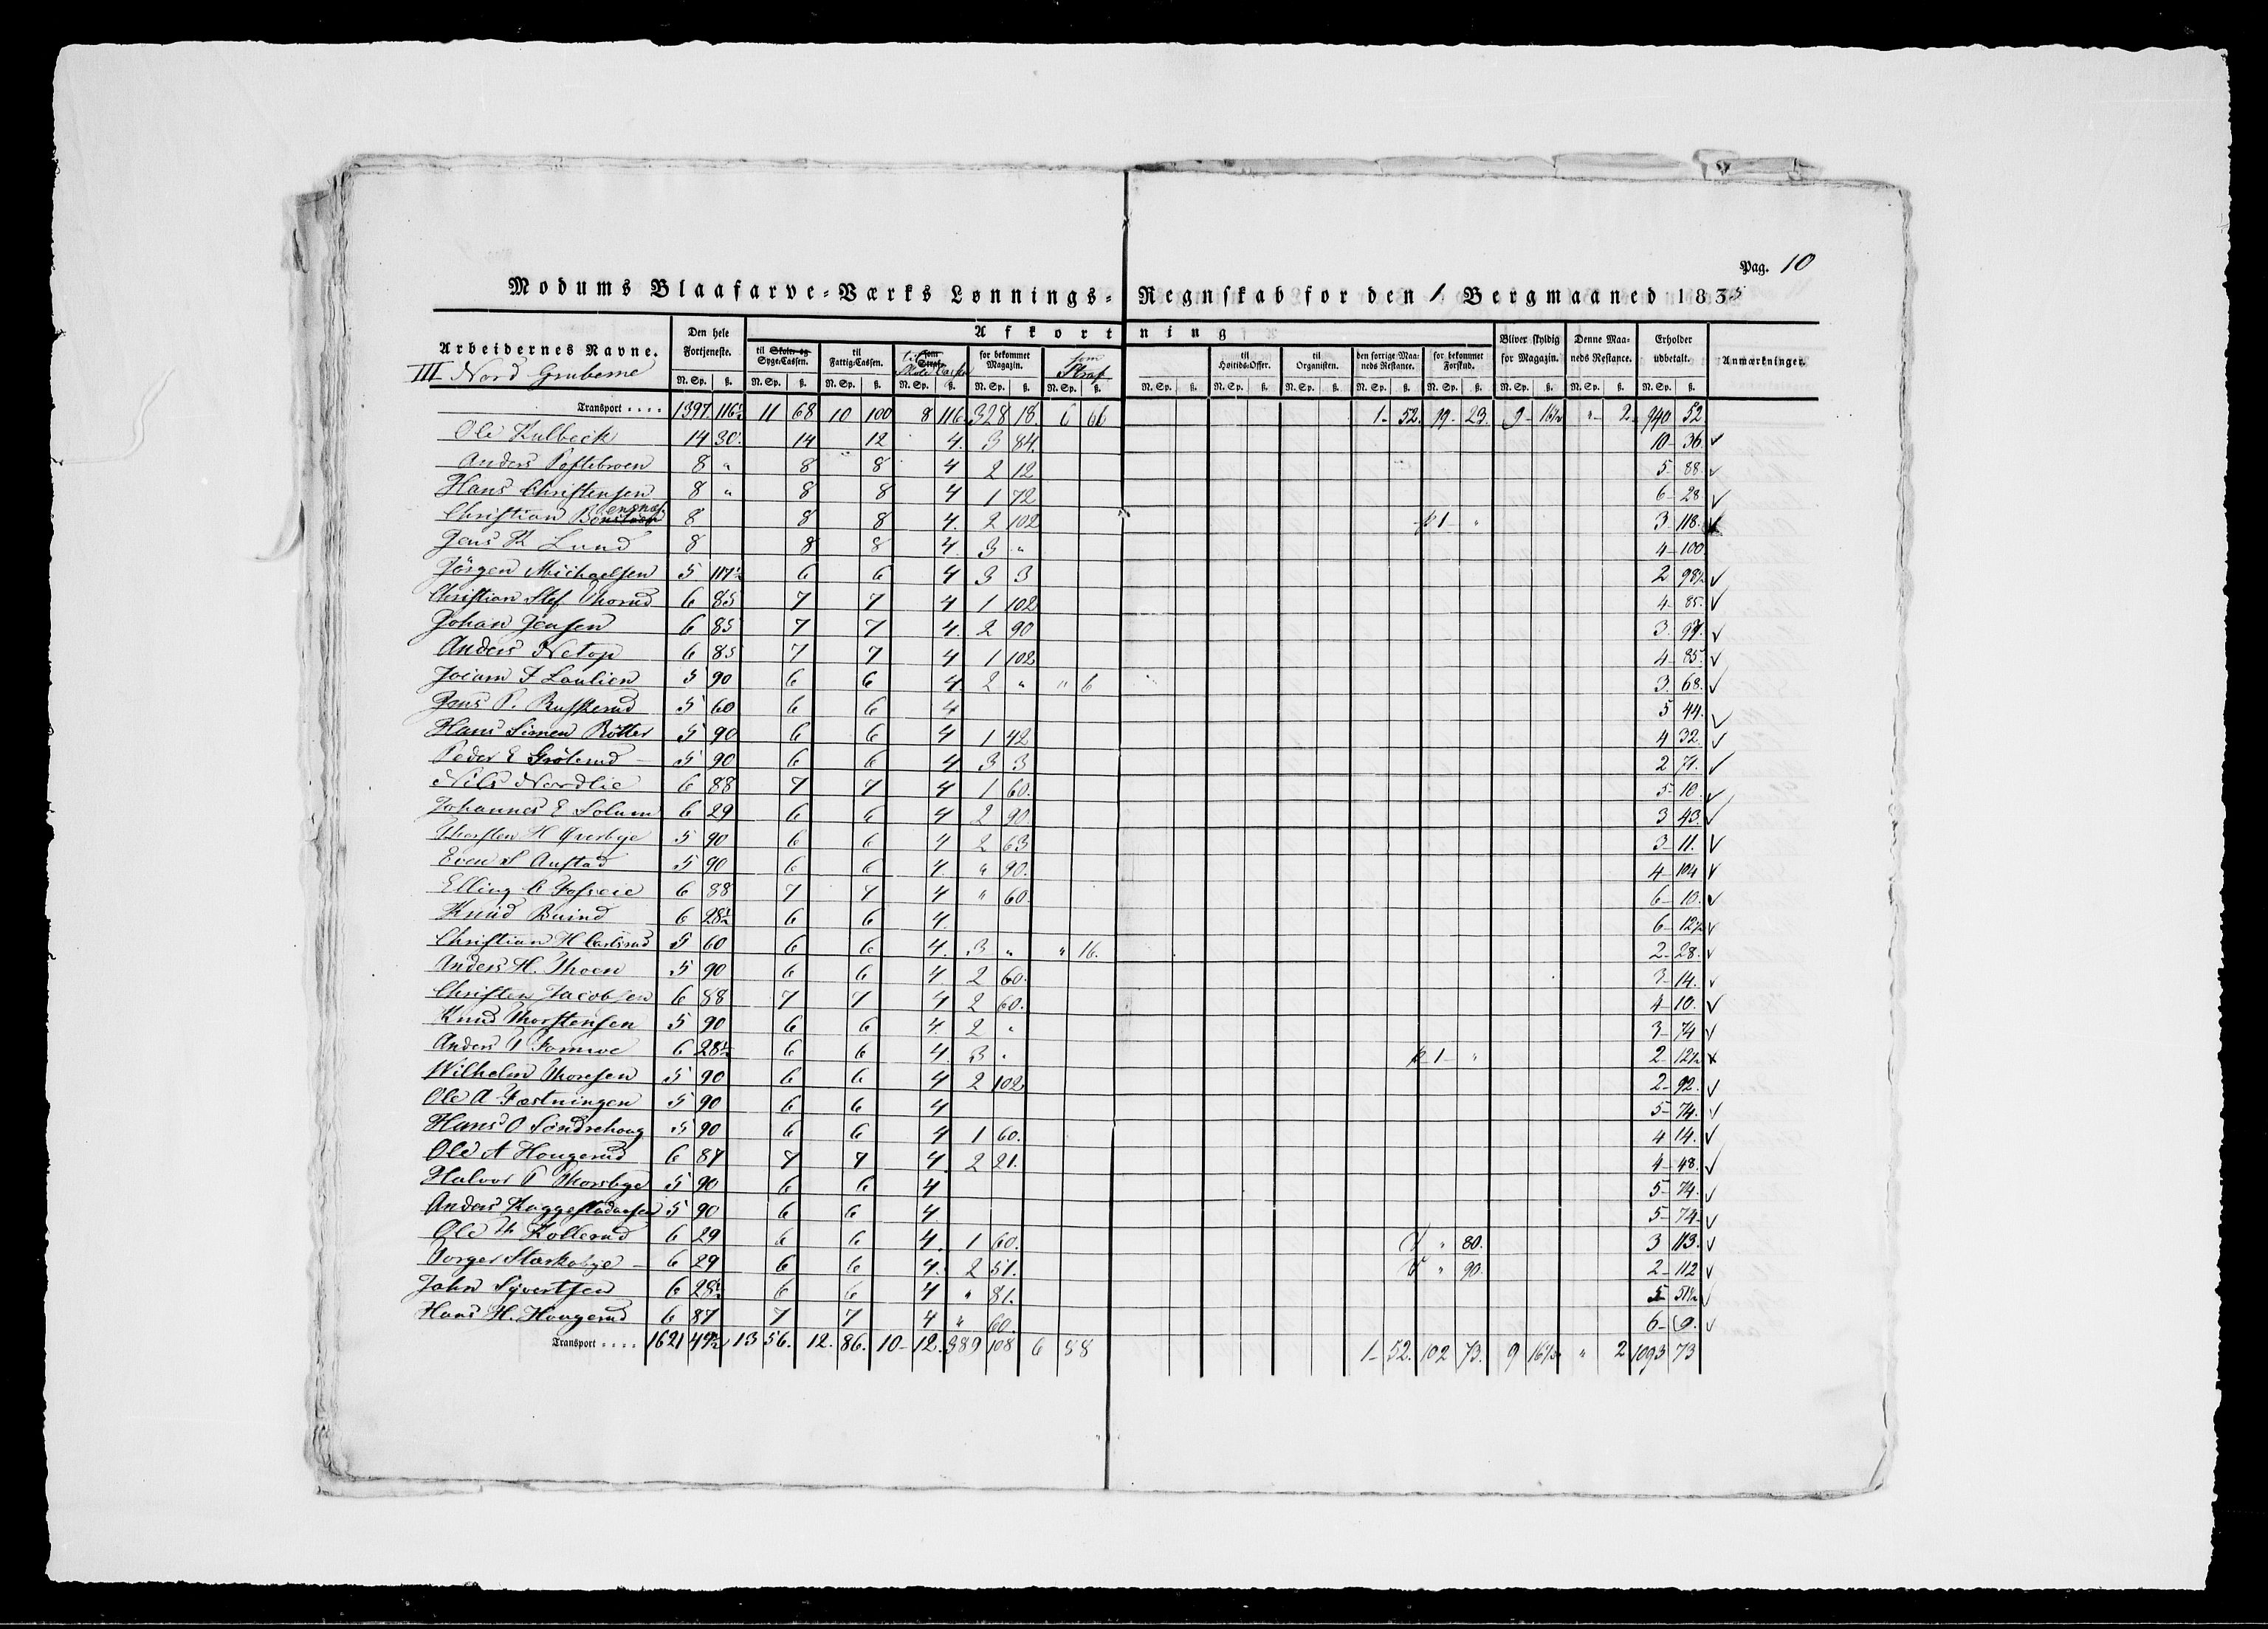 Pag. 10
Modums Blaafarve-Værks Lønnings- Regnskab for den 1 Bergmaaned 1835
Afkortning
Arbeidernes Navne. Den hele Fortjeneste. til Skole og Syge-Cassen. til Fattig-Cassen. til Skole Cassen for bekommet Magazin. som Straf til Høitids-Offer. til Organisten. den forrige Maaneds Restance. for bekommet Forskud. Bliver skyldig for Magazin. Denne Maaneds Restance. Erholder udbetalt. Anmærkninger.
III Nord Gruberne
N. Sp. ß. N. Sp. ß. N. Sp. ß. N. Sp. ß. N. Sp. ß. N. Sp. ß. N. Sp. ß. N. Sp. ß. N. Sp. ß. N. Sp. ß. N. Sp. ß. N. Sp. ß. N. Sp. ß. N. Sp. ß.
Transport .... 1397 116½ 11 68 10 100 8 116 328 18. 6 66 1- 52. 19- 23. 9- 16½ " 2 940 52
Ole Kulbeck 14 30. 14 12 4. 3 84. 10- 36 ✓
Anders 8 " 8 8 4 2 12 5- 88. ✓
Hans Christensen 8 " 8 8 4 1 72 6- 28 ✓
Christian 8 8 8 4. 2 102 1 " 3 118.
Jens R Lund 8 8 8 4. 3 " 4- 100.
Jörgen Michaelsen 5 117½ 6 6 4 3 3 2 98½ ✓
Christian Stef. Thorud 6 85 7 7 4 1 102 4- 85. ✓
Johan Jensen 6 85 7 7 4. 2 90 3. 97. ✓
Anders Netop 6 85 7 7 4 1 102 4- 85. ✓
Joram I Laulien 5 90 6 6 4. 2 " " 6 3. 68. ✓
Jens P. Buskerud 5 60 6 6 4 5 44. ✓
Hans Simen Rötter 5 90 6 6 4 1 42 4 32. ✓
Peder E 5 90 6 6 4 3 3 2 71. ✓
Nils Nordlie 6 88 7 7 4 1 60. 5- 10. ✓
Johannes E Solum 6 29 6 6 4 2 90. 3 43. ✓
Thorsten H 5 90 6 6 4 2 63 3- 11. ✓
Even S Austad 5 90 6 6 4. " 90. 4- 104 ✓
Elling 6 88 7 7 4 " 60. 6- 10. ✓
Knud Buind 6 28½ 6 6 4. 6- 12½ ✓
Christian H Carlsrud 5 60 6 6 4. 3 " " 16. 2- 28. ✓
Anders H. Thoen 5 90 6 6 4. 2 60. 3- 14. ✓
Christen Jacobsen 6 88 7 7 4 2 60. 4- 10. ✓
Knud Thorstensen 5 90 6 6 4. 2 " 3- 74 ✓
Anders 6 28½ 6 6 4. 3 " 1- " 2- 12½ x
Wilhelm Thoresen 5 90 6 6 4 2 102 2- 92. ✓
Ole A Fæstningen 5 90 6 6 4 5- 74. ✓
Hans O Söndrehoug 5 90 6 6 4 1 60. 4 14. ✓
Ole A Hougerud 6 87 7 7 4. 2 21. 4- 48. ✓
Halvor P Thorsbye 5 90 6 6 4 5- 74. ✓
Anders Kaggestadæsen 5 90 6 6 4. 5- 74 ✓
Ole Th Kollerud 6 29 6 6 4. 1 60. " 80. 3 113. ✓
Borger Starkebye 6 29 6 6 4. 2 51. " 90. 2- 112 ✓
John Syvertsen 6 28½ 6 6 4 " 81. 5 51½ ✓
Hans H. Hougerud 6 87 7 7 4 " 60. 6- 9. ✓
Transport .... 1621 49½ 13 56. 12. 86. 10- 12. 389 108 6 88 1- 52. 102 73. 9 16½ " 2 1093 73